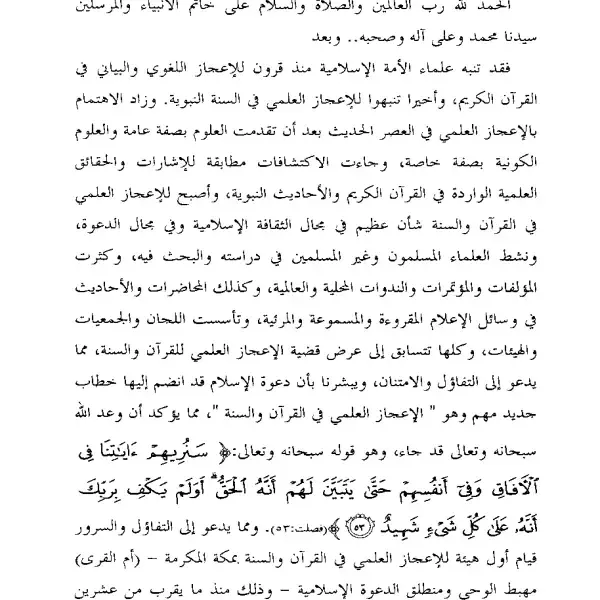 الحمد لله رب العالمين والصلاة والسلام على خاتم الأنبياء والمرسلين
سيدنا محمد وعلى آله وصحبه.. وبعد
فقد تنبه علماء الأمة الإسلامية منذ قرون للإعجاز اللغوي والبياني في
القرآن الكريم، وأخيرا تنبهوا للإعجاز العلمي في السنة النبوية. وزاد الاهتمام
بالإعجاز العلمي في العصر الحديث بعد أن تقدمت العلوم بصفة عامة والعلوم
الكونية بصفة خاصة، وجاءت الاكتشافات مطابقة للإشارات والحقائق
العلمية الواردة في القرآن الكريم والأحاديث النبوية، وأصبح للإعجاز العلمي
في القرآن والسنة شأن عظيم في مجال الثقافة الإسلامية وفي مجال الدعوة،
ونشط العلماء المسلمون وغير المسلمين في دراسته والبحث فيه، وكثرت
المؤلفات والمؤتمرات والندوات المحلية والعالمية، وكذلك المحاضرات والأحاديث
في وسائل الإعلام المقروءة والمسموعة والمرئية، وتأسست اللجان والجمعيات
والهيئات، وكلها تتسابق إلى عرض قضية الإعجاز العلمي للقرآن والسنة، مما
يدعو إلى التفاؤل والامتنان، ويبشرنا بأن دعوة الإسلام قد انضم إليها خطاب
جديد مهم وهو " الإعجاز العلمي في القرآن والسنة "، مما يؤكد أن وعد الله
سبحانه وتعالى قد جاء، وهو قوله سبحانه وتعالى:﴿ سَنُرِيهِمْ ءَايَٰتِنَا فِي
ٱلْأَفَاقِ وَفِىٓ أَنفُسِهِمْ حَتَّىٰ يَتَبَيَّنَ لَهُمْ أَنَّهُ ٱلْحَقُّ ۗ أَوَلَمْ يَكْفِ بِرَبِّكَ
أَنَّهُۥ عَلَىٰ كُلِّ شَىْءٍ شَهِيدٌ ﴿٥٣﴾ ﴾(فصلت:٥٣). ومما يدعو إلى التفاؤل والسرور
قيام أول هيئة للإعجاز العلمي في القرآن والسنة بمكة المكرمة – (أم القرى)
مهبط الوحي ومنطلق الدعوة الإسلامية – وذلك منذ ما يقرب من عشرين